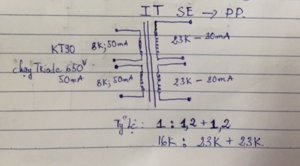 IT SE → PP.
KT90
8K; 50mA
23K - 20mA
chạy Triode 650V
50mA
8K; 50mA
23K - 20mA
Tỷ lệ: 1 : 1,2 + 1,2
16K : 23K + 23K